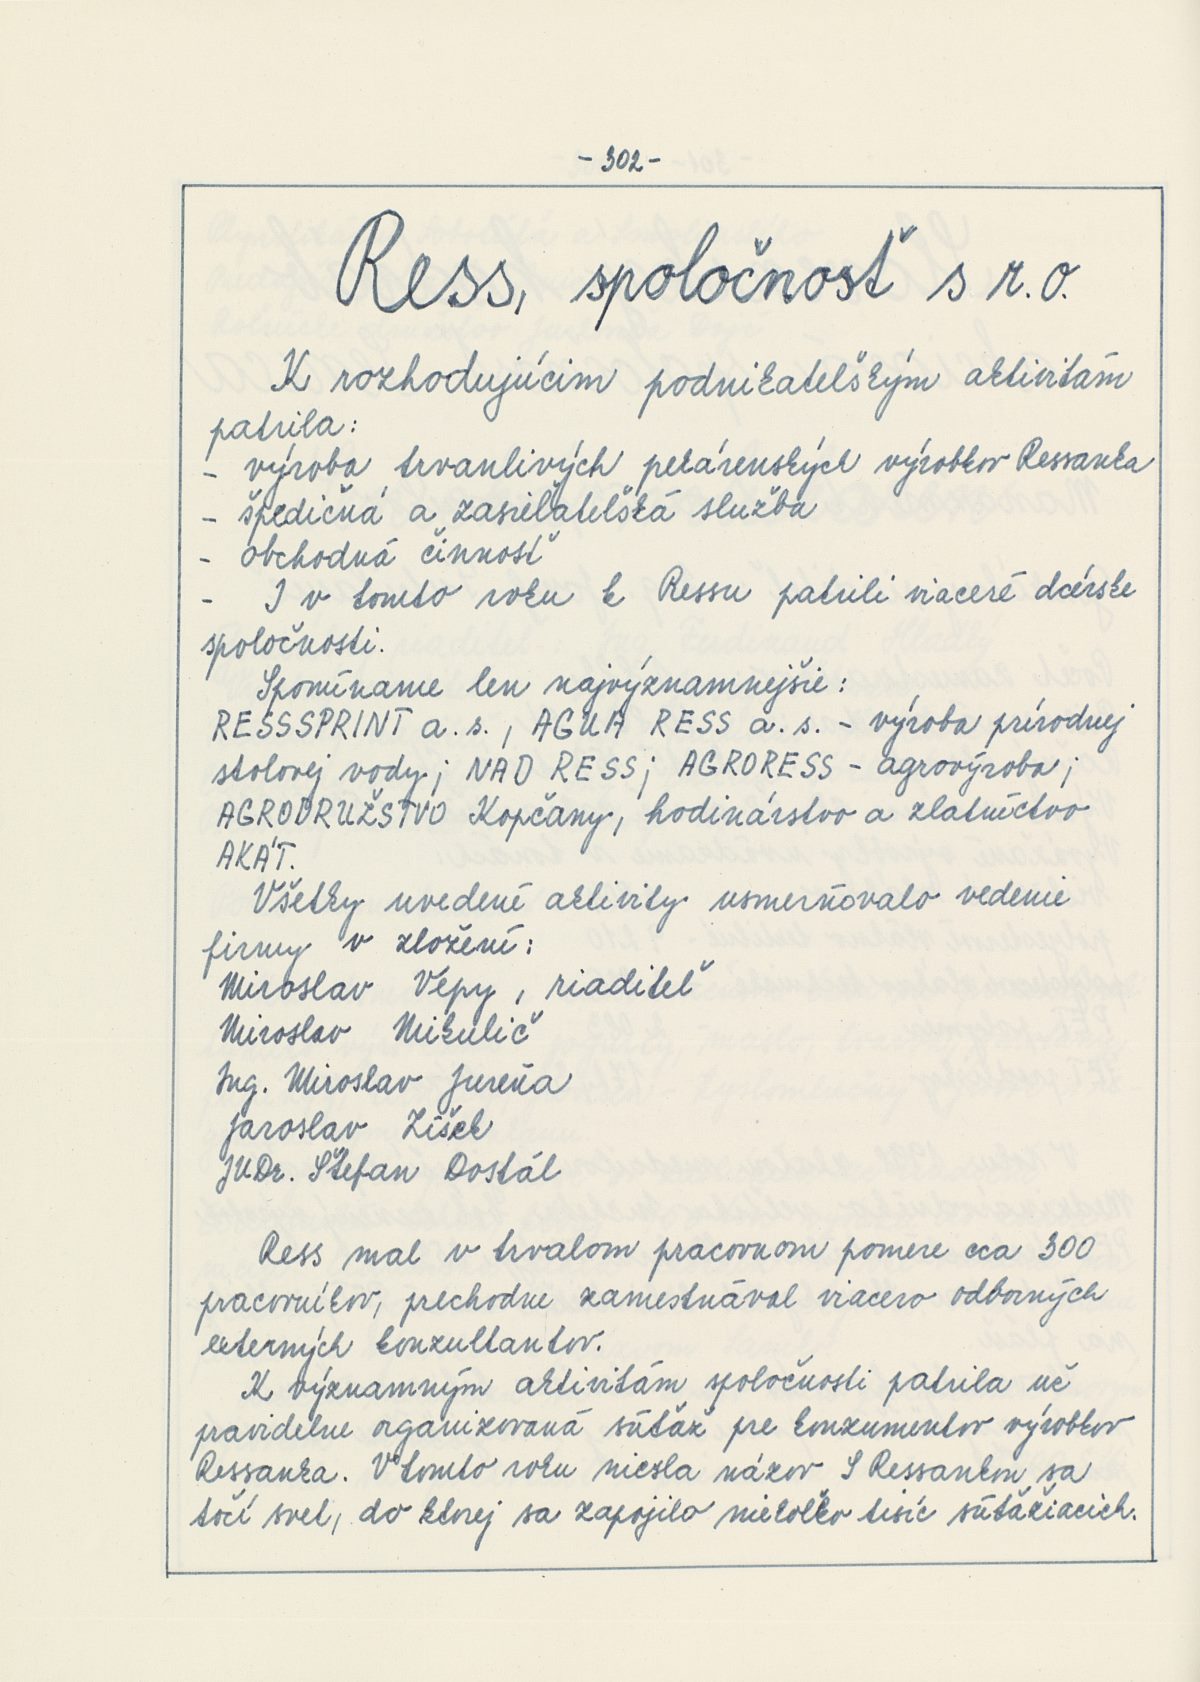 - 302 -
Ress, spoločnosť s r.o.
K rozhodujúcim podnikateľským aktivitám
patrila:
- výroba trvanlivých pekárenských výrobkov Ressanka
- špedičná a zasieľateľská služba
- obchodná činnosť
- I v tomto roku k Ressu patrili viaceré dcérske
spoločnosti.
Spomíname len najvýznamnejšie:
RESSSPRINT a.s., AGUA RESS a.s. - výroba prírodnej
stolovej vody; NAD RESS; AGRORESS - agrovýroba;
AGRODRUŽSTVO Kopčany, hodinárstvo a zlatníctvo
AKÁT.
Všetky uvedené aktivity usmerňovalo vedenie
firmy v zložení:
Miroslav Vépy, riaditeľ
Miroslav Mikulič
Ing. Miroslav Jureňa
Jaroslav Zíšek
JUDr. Štefan Dostál
Ress mal v trvalom pracovnom pomere cca 300
pracovníkov, prechodne zamestnával viacero odborných
externých konzultantov.
K významným aktivitám spoločnosti patrila už
pravidelne organizovaná súťaž pre konzumentov výrobkov
Ressanka. V tomto roku niesla názov S Ressankou sa
točí svet, do ktorej sa zapojilo niekoľko tisíc súťažiacich.